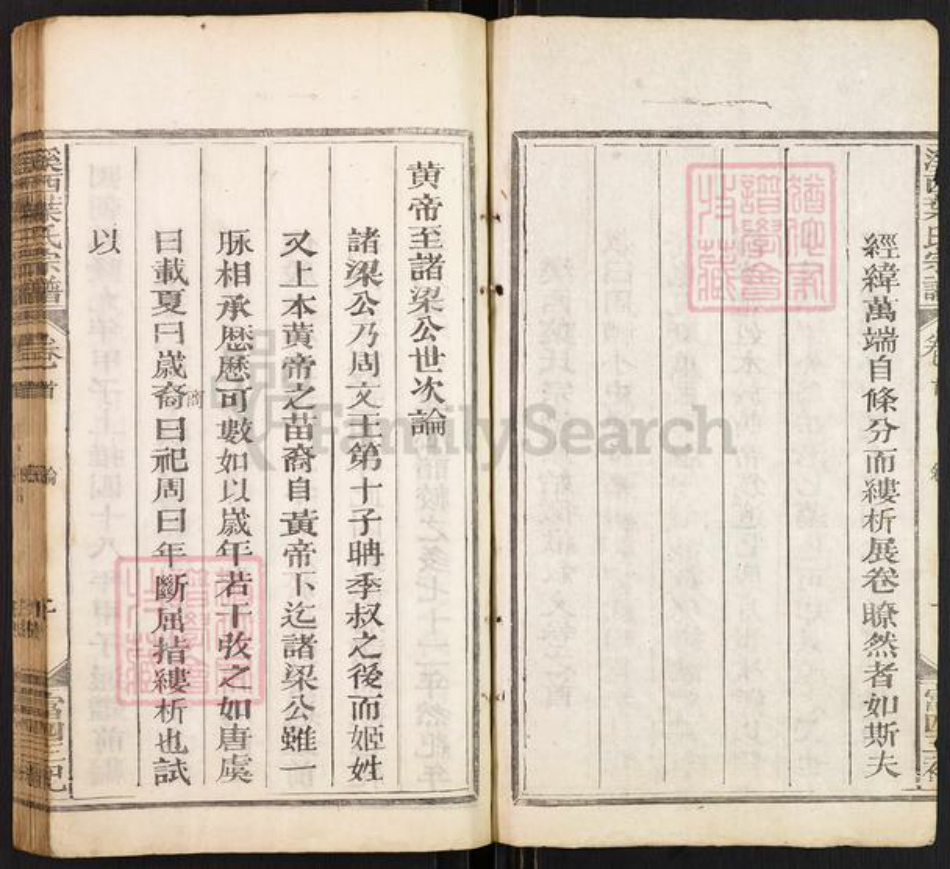 經緯萬端自條分而縷析展卷瞭然者如斯夫
黄帝至諸梁公世次論
諸梁公乃周文王第十子聃季叔之後而姬姓
又上本黄帝之苗裔自黄帝下迄諸梁公雖一
脉相承歴歴可數如以嵗年若干攷之如唐虞
曰載夏曰嵗商曰祀周曰年斷屈指縷析也試
以
溪西葉氏宗譜
卷首
FamilySearch